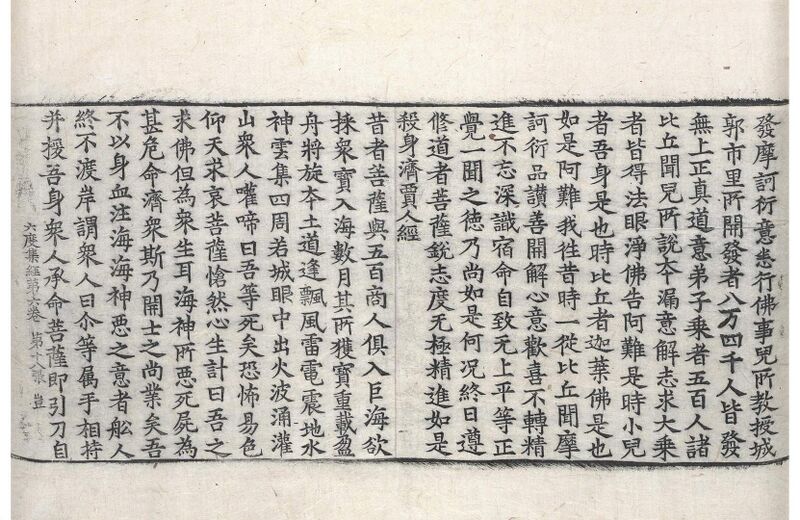 發摩訶衍意悉行佛事兒所教授城
郭市里所開發者八万四千人皆發
無上正真道意弟子乘者五百人諸
比丘聞兒所說夲漏意解志求大乘
者皆得法眼淨佛告阿難是時小兒
者吾身是也時比丘者迦葉佛是也
如是阿難我徃昔時一從比丘聞摩
訶衍品讃善開解心意歡喜不轉精
進不忘深識宿命自致无上平等正
覺一聞之德乃尚如是何況終日遵
修道者菩薩銳志度无極精進如是
殺身濟賈人經
昔者菩薩與五百商人俱入巨海欲
採衆寶入海數月其所獲寶重載盈
舟將旋夲土道逢飄風雷電震地水
神雲集四周若城眼中出火波涌灌
山衆人嚾啼曰吾等死矣恐怖易色
仰天求哀菩薩愴然心生計曰吾之
求佛但為衆生耳海神所惡死屍為
甚危命濟衆斯乃開士之尚業矣吾
不以身血注海海神惡之意者舩人
終不渡岸謂衆人曰尒等属手相持
并援吾身衆人承命菩薩即引刀自
六度集經第六卷 第十八張 豈